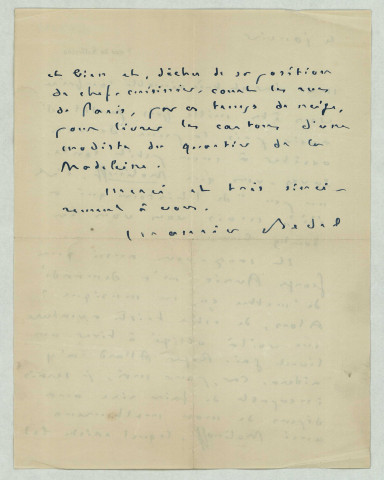 et bien et, déchu de sa position
de chef-cuisinier, court les rues
de Paris, par ce temps de neige,
pour livrer les cartons d'une
modiste du quartier de la
Madeleine.
Merci et très sincè-
rement à vous.
Maurice Bedel